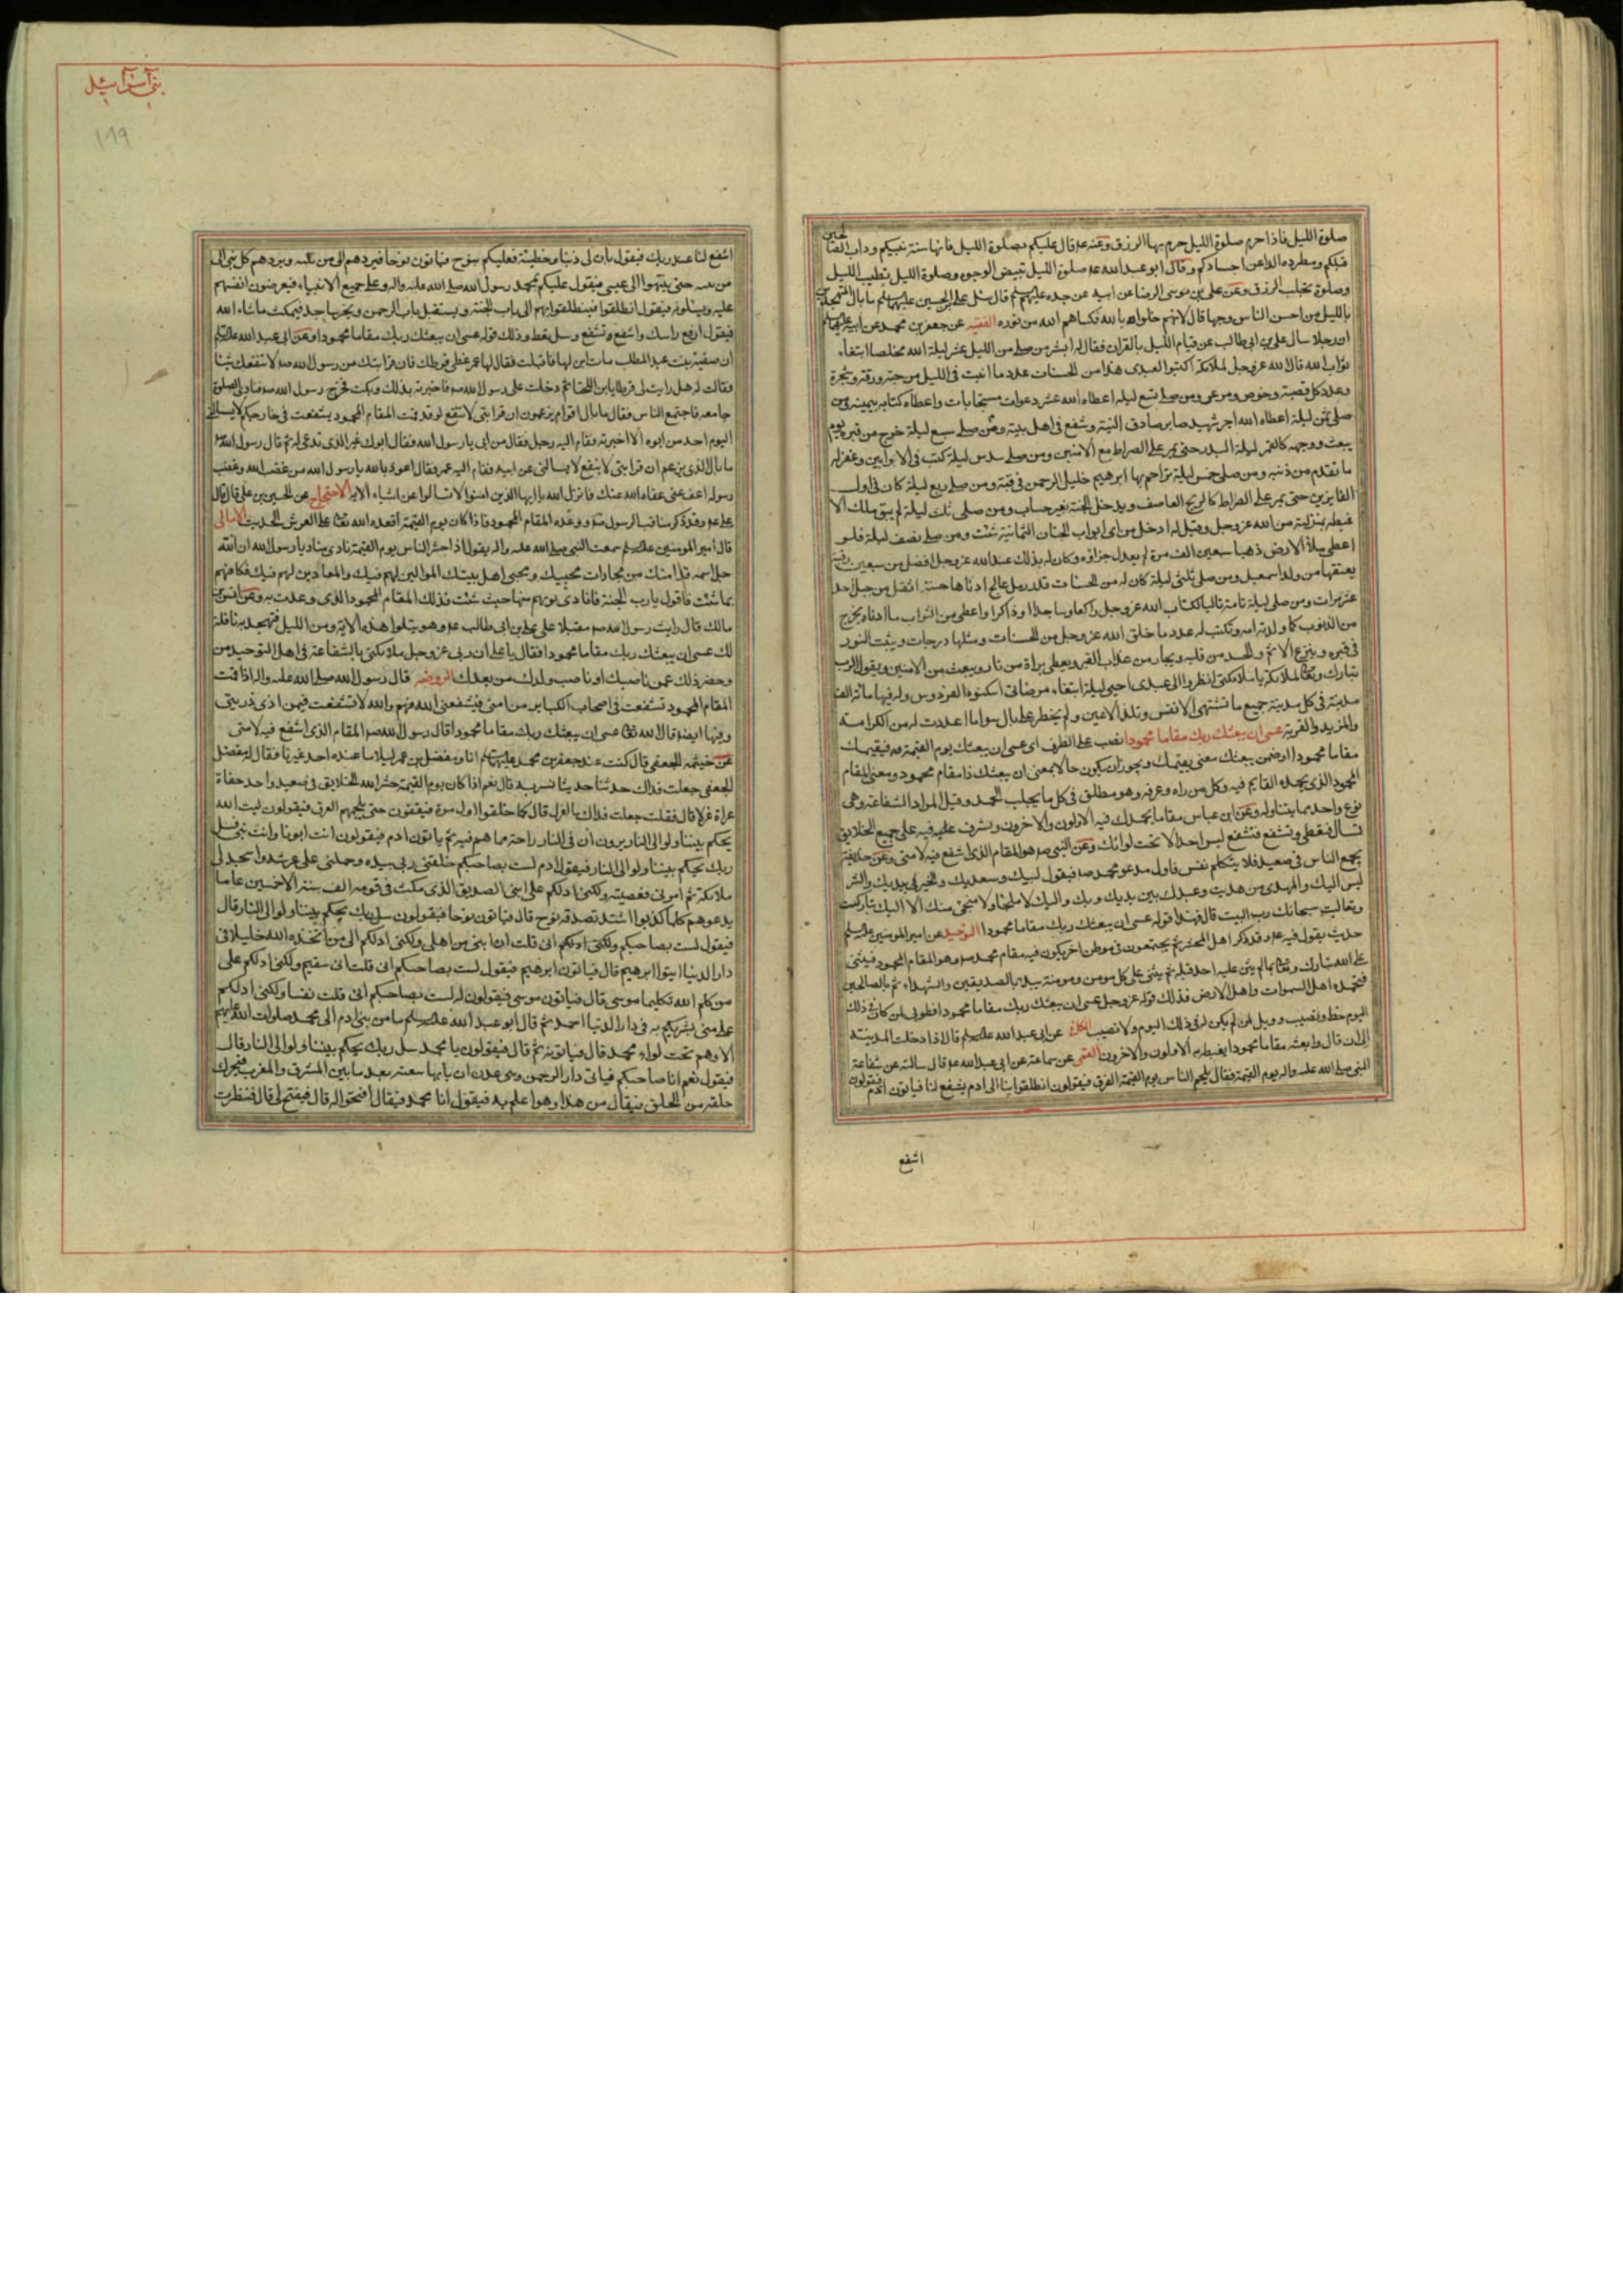 صلوة الليل فاذا حرم صلوة الليل حرم بها الرزق وعنه ع قال عليكم بصلوة الليل فانها سنة نبيكم وداب الصالحين
قبلكم ومطردة الداء عن اجسادكم وقال ابو عبد الله ع صلوة الليل تبيض الوجوه وصلوة الليل تطيب الليل
وصلوة تجلب الرزق وعن علي بن موسى الرضا عن ابيه عن جده عليهم قال سئل علي بن الحسين عليهما ما بال المتهجدين
بالليل من احسن الناس وجها قال لانهم خلوا بالله فكساهم الله من نوره الفقيه عن جعفر بن محمد عن ابيه عليهما
ان رجلا سال علي بن ابي طالب عن قيام الليل بالقران فقال له ابشر من صلى من الليل عشر ليلة لله مخلصا ابتغاء
ثواب الله قال الله عز وجل لملائكته اكتبوا لعبدي هذا من الحسنات عدد ما انبت في الليل من حبة وورقة وشجرة
وعدد كل قصبة وخوص ومرعى ومن صلى تسع ليلة اعطاه الله عشر دعوات مستجابات واعطاه كتابه بيمينه ومن
صلى ثمن ليلة اعطاه الله اجر شهيد صابر صادق النية وشفع في اهل بيته ومن صلى سبع ليلة خرج من قبره يوم
يبعث ووجهه كالقمر ليلة البدر حتى يمر على الصراط مع الامنين ومن صلى سدس ليلة كتب في الاوابين وغفر له
ما تقدم من ذنبه ومن صلى خمس ليلة زاحم بها ابرهيم خليل الرحمن في قبته ومن صلى ربع ليلة كان في اول
الفايزين حتى يمر على الصراط كالريح العاصف ويدخل الجنة بغير حساب ومن صلى ثلث ليلة لم يبق ملك الا
غبطه بمنزلته من الله عز وجل وقيل له ادخل من اي ابواب الجنان الثمانية شئت ومن صلى نصف ليلة فلو
اعطي ملأ الارض ذهبا سبعين الف مرة لم يعدل جزاؤه وكان له بذلك عند الله عز وجل افضل من سبعين رقبة
يعتقها من ولد اسمعيل ومن صلى ثلثي ليلة كان له من الحسنات قدر رمل عالج ادناها حسنة اثقل من جبل احد
عشر مرات ومن صلى ليلة تامة تاليا لكتاب الله عز وجل راكعا وساجدا وذاكرا اعطي من الثواب ما ادناه يخرج
من الذنوب كما ولدته امه وتكتب له عدد ما خلق الله عز وجل من الحسنات ومثلها درجات ويثبت النور
في قبره وينزع الاثم والحسد من قلبه ويجار من عذاب القبر ويعطى براة من النار ويبعث من الامنين ويقول الرب
تبارك وتعالى لملائكته يا ملائكتي انظروا الى عبدي احيى ليلة ابتغاء مرضاتي اسكنوه الفردوس وله فيها مائة الف
مدينة في كل مدينة جميع ما تشتهي الانفس وتلذ الاعين ولم يخطر على بال سوى ما اعددت له من الكرامة
والمزيد والقربة عسى ان يبعثك ربك مقاما محمودا نصب على الظرف اي عسى ان يبعثك يوم القيمة فيقيمك
مقاما محمودا او ضمن يبعثك معنى يقيمك ويجوز ان يكون حالا بمعنى ان يبعثك ذا مقام محمود ومعنى المقام
المحمود الذي يحمده القايم فيه وكل من راه وعرفه وهو مطلق في كل ما يجلب الحمد وقيل المراد الشفاعة وهي
نوع واحد مما يتناوله وعن ابن عباس مقاما يحمدك فيه الاولون والاخرون ويشرف عليه فيه على جميع الخلايق
تسال فتعطى وتشفع فتشفع ليس احد الا تحت لوائك وعن النبي ص هو المقام الذي اشفع فيه لامتي وعن حذيفة
يجمع الناس في صعيد فلا يتكلم نفس فاول مدعو محمد ص فيقول لبيك وسعديك والخير في يديك والشر
ليس اليك والمهدي من هديت وعبدك بين يديك وبك واليك لا ملجا ولا منجى منك الا اليك تباركت
وتعاليت سبحانك رب البيت قال فهذا قوله عسى ان يبعثك ربك مقاما محمودا التوحيد عن امير المومنين
حديث يقول فيه ع وقد ذكر اهل المحشر ثم يجتمعون في موطن اخر يكون فيه مقام محمد ص وهو المقام المحمود فيثني
على الله تبارك وتعالى بما لم يثن عليه احد قبله ثم يثني على كل مومن ومومنة يبدا بالصديقين والشهداء ثم بالصالحين
فتحمده اهل السموات واهل الارض فذلك قوله عز وجل عسى ان يبعثك ربك مقاما محمودا فطوبى لمن كان في ذلك
اليوم حظ ونصيب وويل لمن لم يكن له في ذلك اليوم ولا نصيب عن ابي عبد الله قال اذا دخلت المدينة
الى ان قال وابعثه مقاما محمودا يغبطه به الاولون والاخرون القمي عن سماعة عن ابي عبد الله ع قال سالته عن شفاعة
النبي صلى الله عليه واله يوم القيمة فقال يلجم الناس يوم القيمة العرق فيقولون انطلقوا بنا الى ادم يشفع لنا فياتون ادم فيقولون
اشفع
بني اسرائيل
١٨٩
اشفع لنا عند ربك فيقول ان لي ذنبا وخطيئة فعليكم بنوح فياتون نوحا فيردهم الى من يليه ويردهم كل نبي الى
من يليه حتى ينتهوا الى عيسى فيقول عليكم بمحمد رسول الله صلى الله عليه واله وعلى جميع الانبياء فيعرضون انفسهم
عليه ويسالونه فيقول انطلقوا فينطلق بهم الى باب الجنة ويستقبل باب الرحمن ويخر ساجدا فيمكث ما شاء الله
فيقول ارفع راسك واشفع وتشفع وسل تعط وذلك قوله عسى ان يبعثك ربك مقاما محمودا وعن ابي عبد الله
ان صفية بنت عبد المطلب مات ابن لها فاقبلت فقال لها عمر غطي قرطك فان قرابتك من رسول الله ص لا تنفعك شيئا
فقالت له هل رايت لي قرطا يابن اللخنا ثم دخلت على رسول الله ص فاخبرته بذلك وبكت فخرج رسول الله ص فنادى الصلوة
جامعة فاجتمع الناس فقال ما بال اقوام يزعمون ان قرابتي لا تنفع لو قد قمت المقام المحمود لشفعت في
اليوم احد من ابوه الا اخبرته فقام اليه رجل فقال من ابي يا رسول الله فقال ابوك غير الذي تدعى له ثم قال رسول الله
ما بال الذي يزعم ان قرابتي لا ينفع لا يسالني عن ابيه فقام اليه عمر فقال اعوذ بالله يا رسول الله من غضب الله وغضب
رسوله اعف عني عفاء الله عنك فانزل الله يا ايها الذين امنوا لا تسالوا عن اشياء الاية الاحتجاج عن الحسين بن علي قال قال
علي ع وقد ذكر مناقب الرسول ص ووعده المقام المحمود فاذا كان يوم القيمة اقعده الله تعالى على العرش الحديث الامالي
قال امير المومنين سمعت النبي صلى الله عليه واله يقول اذا حشر الناس يوم القيمة نادى مناد يا رسول الله ان الله
جل اسمه قد امكنك من مجازات محبيك ومحبي اهل بيتك الموالين لهم فيك والمعادين لهم فيك فكافهم
بما شئت فاقول يا رب الجنة فانادى بوئهم منها حيث شئت فذلك المقام المحمود الذي وعدت به وعن انس بن
مالك قال رايت رسول الله ص مقبلا على علي بن ابي طالب ع وهو يتلوا هذه الاية ومن الليل فتهجد به نافلة
لك عسى ان يبعثك ربك مقاما محمودا فقال يا علي ان ربي عز وجل ملكني بالشفاعة في اهل التوحيد من
وحضر ذلك عمن ناصبك او ناصب ولدك من بعدك الروضة قال رسول الله صلى الله عليه واله اذا قمت
المقام المحمود تشفعت في اصحاب الكباير من امتي فيشفعني الله فيهم والله لا تشفعت فيمن اذى ذريتي
وفيها ايضا قال الله تعالى عسى ان يبعثك ربك مقاما محمودا قال رسول الله ص المقام الذي اشفع فيه لامتي
عن خيثمة الجعفي قال كنت عند جعفر بن محمد عليهما انا ومفضل بن عمر ليلا ما عنده احد غيرنا فقال له مفضل
الجعفي جعلت فداك حدثنا حديثا نسر به قال نعم اذا كان يوم القيمة حشر الله الخلايق في صعيد واحد حفاة
عراة غرلا قال فقلت جعلت فداك ما الغرل قال كما خلقوا اول مرة فيقفون حتى يلجمهم العرق فيقولون ليت الله
يحكم بيننا ولو الى النار يرون ان في النار راحة مما هم فيه ثم ياتون ادم فيقولون انت ابونا وانت نبي فسل
ربك يحكم بيننا ولو الى النار فيقول ادم لست بصاحبكم خلقني ربي بيده وحملني على عرشه واسجد لي
ملائكته ثم امرني فعصيته ولكني ادلكم على ابني الصديق الذي مكث في قومه الف سنة الا خمسين عاما
يدعوهم كلما كذبوا اشتد تصدقه نوح قال فياتون نوحا فيقولون سل ربك يحكم بيننا ولو الى النار قال
فيقول لست بصاحبكم ولكني ادلكم اني قلت ان ابني من اهلي ولكني ادلكم الى من اتخذه الله خليلا في
دار الدنيا ايتوا ابرهيم قال فياتون ابرهيم فيقول لست بصاحبكم اني قلت اني سقيم ولكني ادلكم على
من كلم الله تكليما موسى قال فياتون موسى فيقولون له لست بصاحبكم اني قلت نفسا ولكني ادلكم
على من يبشركم به في دار الدنيا احمد ثم قال ابو عبد الله ما من بني ادم الى محمد صلوات الله عليهم
الا وهم تحت لواء محمد قال فياتونه ثم قال فيقولون يا محمد سل ربك يحكم بيننا ولو الى النار قال
فيقول نعم انا صاحبكم فياتي دار الرحمن وهي عدن ان بابها سعته بعد ما بين المشرق والمغرب فيحرك
حلقة من الحلق فيقال من هذا وهو اعلم به فيقول انا محمد فيقال افتحوا له قال فيفتح لي قال فنظرت